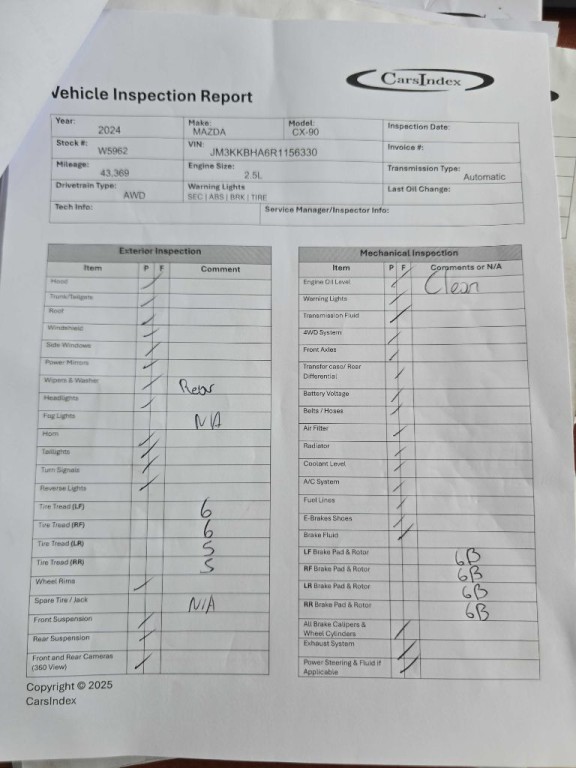 CarsIndex
Vehicle Inspection Report
Year: 2024 Make: MAZDA Model: CX-90 Inspection Date:
Stock #: W5962 VIN: JM3KKBHA6R1156330 Invoice #:
Mileage: 43,369 Engine Size: 2.5L Transmission Type: Automatic
Drivetrain Type: AWD Warning Lights SEC | ABS | BRK | TIRE Last Oil Change:
Tech Info: Service Manager/Inspector Info:
Exterior Inspection
Item P F Comment
Hood
Trunk/Tailgate
Roof
Windshield
Side Windows
Power Mirrors
Wipers & Washer Rear
Headlights
Fog Lights N/A
Horn
Taillights
Turn Signals
Reverse Lights
Tire Tread (LF) 6
Tire Tread (RF) 6
Tire Tread (LR) 5
Tire Tread (RR) 5
Wheel Rims
Spare Tire / Jack N/A
Front Suspension
Rear Suspension
Front and Rear Cameras
(360 View)
Mechanical Inspection
Item P F Comments or N/A
Engine Oil Level Clean
Warning Lights
Transmission Fluid
4WD System
Front Axles
Transfer case/ Rear
Differential
Battery Voltage
Belts / Hoses
Air Filter
Radiator
Coolant Level
A/C System
Fuel Lines
E-Brakes Shoes
Brake Fluid
LF Brake Pad & Rotor 6B
RF Brake Pad & Rotor 6B
LR Brake Pad & Rotor 6B
RR Brake Pad & Rotor 6B
All Brake Calipers &
Wheel Cylinders
Exhaust System
Power Steering & Fluid if
Applicable
Copyright © 2025
CarsIndex